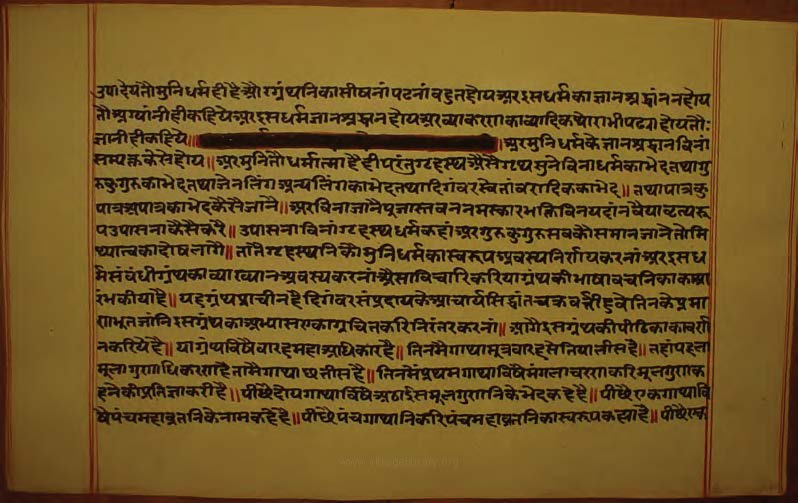 उपादेयतौ मुनिधर्म ही है और ग्रंथनिका सीषनां पटनां बहुत होय अर इस धर्म का ज्ञान श्रद्धांन न होय
तौ अग्यांनी ही कहिये अर इस धर्म ज्ञान श्रद्धान होय अर व्याकरण काव्यादिक थोरा भी पढ्या होय तौः
ज्ञानी ही कहिये॥ ॥अर मुनिधर्म के ज्ञान श्रद्धान विनां
सम्यक्त कैसे होय॥ अर मुनि तौ धर्मात्मा है ही परंतु गृहस्थ असै गृंथ सुने विना धर्म का भेद तथा गु
रु कुगुरु का भेद तथा जैनलिंग अन्यलिंग का भेद तथा दिगंवर स्वेतांवरादिक का भेद॥ तथा पात्र कु
पात्र अपात्र का भेद कैसै जानै॥ अर विना जानै पूजा स्तवन नमस्कार भक्ति विनय दांन वैयावृत्य रू
प उपासना कैसै करै॥ उपासना विनां गृहस्थ धर्म कहां अर गुरु कुगुरु सब कौ समान जानै तौ मि
थ्यात्व का दोष लागै॥ तातै गृहस्थनि कौं मुनिधर्म का स्वरूप अवस्य निर्णय करनां अर इस ध
र्म संवंधी ग्रंथ का व्याख्यान अवस्य करनां असा विचारि करि या ग्रंथ की भाषा वचनिका का प्रा
रंभ कीया है॥ यह ग्रंथ प्राचीन है दिगंवर संप्रदाय के आचार्य सिद्धांत चक्रवर्ती हुवे तिनके प्रमा
णभूत जांनि इस ग्रंथ का अभ्यास एकाग्र चित्त करि निरंतर करनां॥ आगै इस ग्रंथ की पीठिका का वर्ण
न करिये है॥ या ग्रंथ विषै वारह महा अधिकार है॥ तिनमै गाथा सूत्र वारह सै तियालीस है॥ तहां पहला
मूलगुणाधिकार है तामै गाथा छत्तीस है॥ तिनमै प्रथम गाथा विषै मंगलाचरण करि मूलगुण क
हने की प्रतिज्ञा करी है॥ पीछै दोय गाथा विषै अठाईस मूलगुणनि के भेद कहे है॥ पीछै एक गाथा वि
षै पंच महाव्रतनि के नाम कहे है॥ पीछै पंच गाथानि करि पंच महाव्रतनि का स्वरूप कह्या है॥ पीछै एक